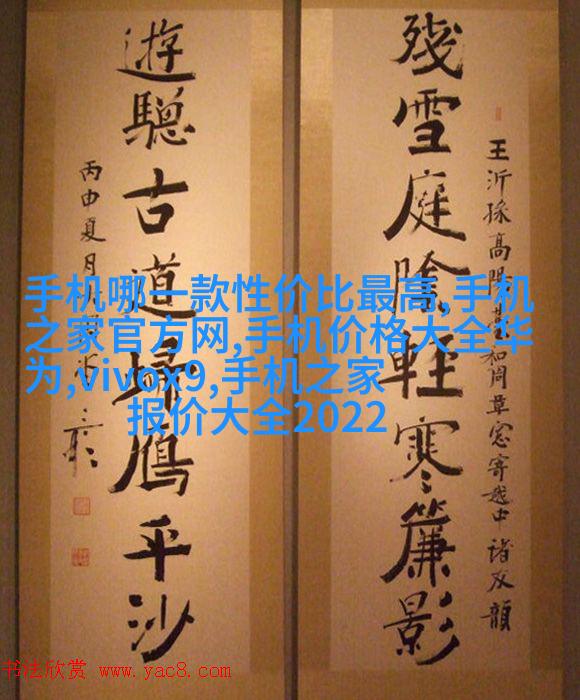 王沂孫高陽臺和周草窓寄越中諸友韻
殘雪庭陰輕寒簾影
遊驄古道歸鴈平沙
丙申夏月
手机哪一款性价比最高,手机
之家官方网,手机价格大全华
为,vivox9,手机之家
报价大全2022
书法欣赏 www.yac8.com